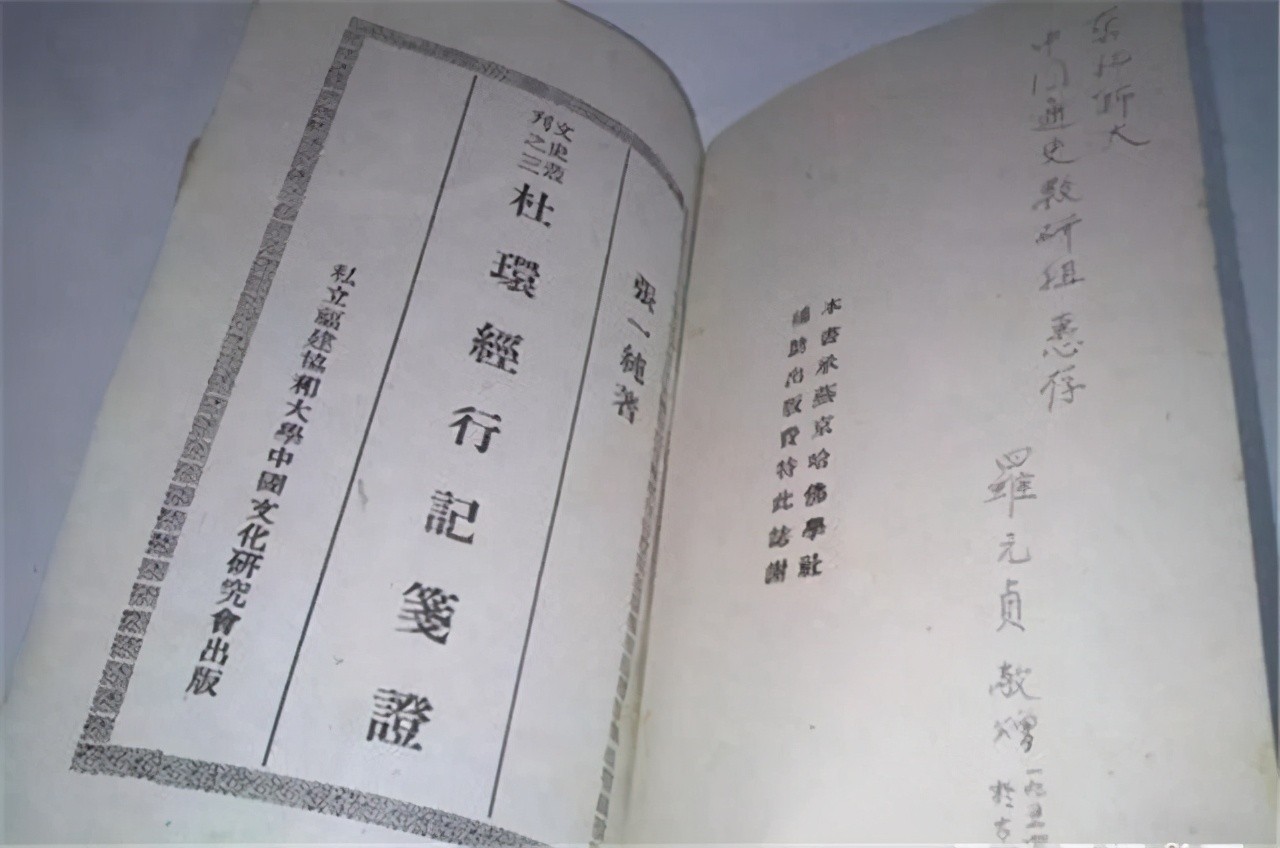 东北师大
中国通史教研组惠存
羅元貞敬赠
一九五
於
本書承燕京哈佛學社
補助出版費特此誌謝
張一純著
文史叢
刊之三
杜環經行記箋證
私立福建協和大學中國文化研究會出版